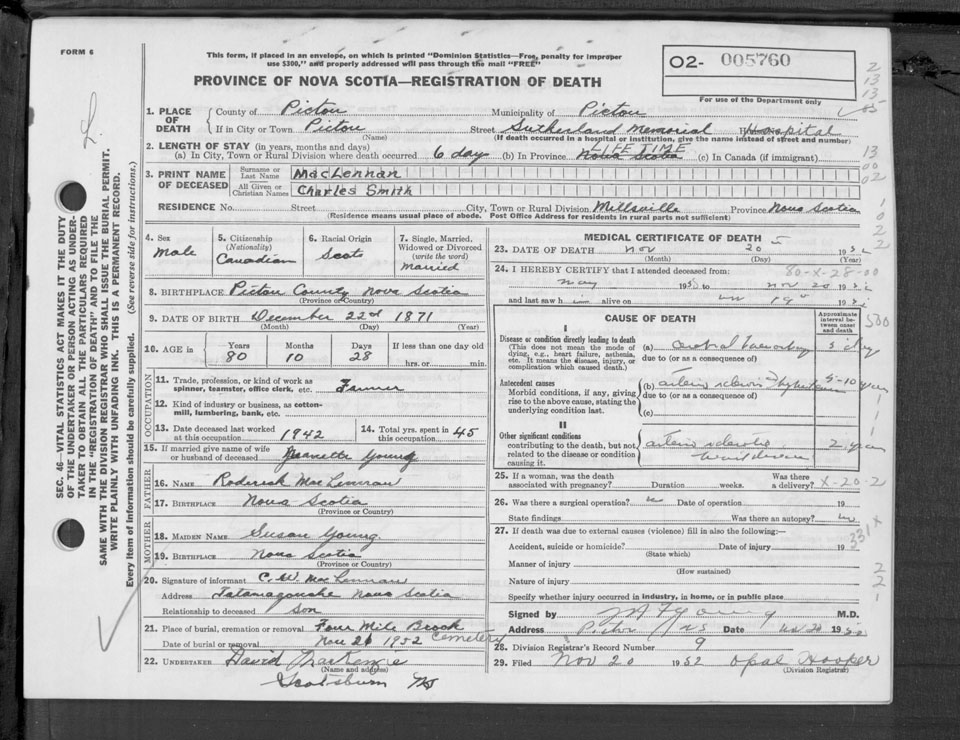 FORM 6
This form, if placed in an envelope, on which is printed "Dominion Statistics—Free, penalty for improper
use $300," and properly addressed will pass through the mail "FREE"
PROVINCE OF NOVA SCOTIA—REGISTRATION OF DEATH
O2- 005760
For use of the Department only
1. PLACE OF DEATH
County of Pictou Municipality of Pictou
If in City or Town Pictou Street Sutherland Memorial Hospital
(Name) (If death occurred in a hospital or institution, give the name instead of street and number)
2. LENGTH OF STAY (in years, months and days) LIFE TIME
(a) In City, Town or Rural Division where death occurred 6 day (b) In Province Nova Scotia (c) In Canada (if immigrant)
3. PRINT NAME OF DECEASED
Surname or Last Name MacLennan
All Given or Christian Names Charles Smith
RESIDENCE No. Street City, Town or Rural Division Millsville Province Nova Scotia
(Residence means usual place of abode. Post Office Address for residents in rural parts not sufficient)
4. Sex Male
5. Citizenship (Nationality) Canadian
6. Racial Origin Scots
7. Single, Married, Widowed or Divorced (write the word) married
8. BIRTHPLACE Pictou County Nova Scotia
(Province or Country)
9. DATE OF BIRTH December 22d 1871
(Month) (Day) (Year)
10. AGE in Years 80 Months 10 Days 28 If less than one day old
hrs. or min.
OCCUPATION
11. Trade, profession, or kind of work as
spinner, teamster, office clerk, etc. Farmer
12. Kind of industry or business, as cotton-
mill, lumbering, bank, etc.
13. Date deceased last worked
at this occupation 1942
14. Total yrs. spent in
this occupation 45
15. If married give name of wife
or husband of deceased Jeanette Young
FATHER
16. NAME Roderick MacLennan
17. BIRTHPLACE Nova Scotia
(Province or Country)
MOTHER
18. MAIDEN NAME Susan Young
19. BIRTHPLACE Nova Scotia
(Province or Country)
20. Signature of informant C. W. MacLennan
Address Tatamagouche Nova Scotia
Relationship to deceased Son
21. Place of burial, cremation or removal Four Mile Brook Cemetery
Date of burial or removal Nov 21 1952
22. UNDERTAKER David MacKenzie
(Name and address)
Scotsburn NS
MEDICAL CERTIFICATE OF DEATH
23. DATE OF DEATH Nov 20 195
(Month) (Day) (Year)
24. I HEREBY CERTIFY that I attended deceased from: 80-X-28-00
May 195 to Nov 20 195
and last saw h alive on 195
CAUSE OF DEATH
Approximate interval between onset and death
I
Disease or condition directly leading to death
(This does not mean the mode of
dying, e.g., heart failure, asthenia,
etc. It means the disease, injury, or
complication which caused death.)
(a) cerebral haemorrhage 5 day
due to (or as a consequence of)
Antecedent causes
Morbid conditions, if any, giving
rise to the above cause, stating the
underlying condition last.
(b) 5-10 years
due to (or as a consequence of)
(c)
II
Other significant conditions
contributing to the death, but not
related to the disease or condition
causing it.
2 years
25. If a woman, was the death
associated with pregnancy? Duration weeks. Was there
a delivery? X-20-2
26. Was there a surgical operation? Date of operation 19
State findings Was there an autopsy?
27. If death was due to external causes (violence) fill in also the following:—
Accident, suicide or homicide? Date of injury 19
(State which)
Manner of injury
(How sustained)
Nature of injury
Specify whether injury occurred in industry, in home, or in public place
331 X
Signed by Young M.D.
Address Pictou NS Date Nov 20 19
28. Division Registrar's Record Number 9
29. Filed Nov 20 1952 Opal Hooper
(Division Registrar)
SEC. 46—VITAL STATISTICS ACT MAKES IT THE DUTY
OF THE UNDERTAKER OR PERSON ACTING AS UNDER-
TAKER TO OBTAIN ALL THE PARTICULARS REQUIRED
IN THE "REGISTRATION OF DEATH" AND TO FILE THE
SAME WITH THE DIVISION REGISTRAR WHO SHALL ISSUE THE BURIAL PERMIT.
WRITE PLAINLY WITH UNFADING INK. THIS IS A PERMANENT RECORD.
Every item of information should be carefully supplied. (See reverse side for instructions.)